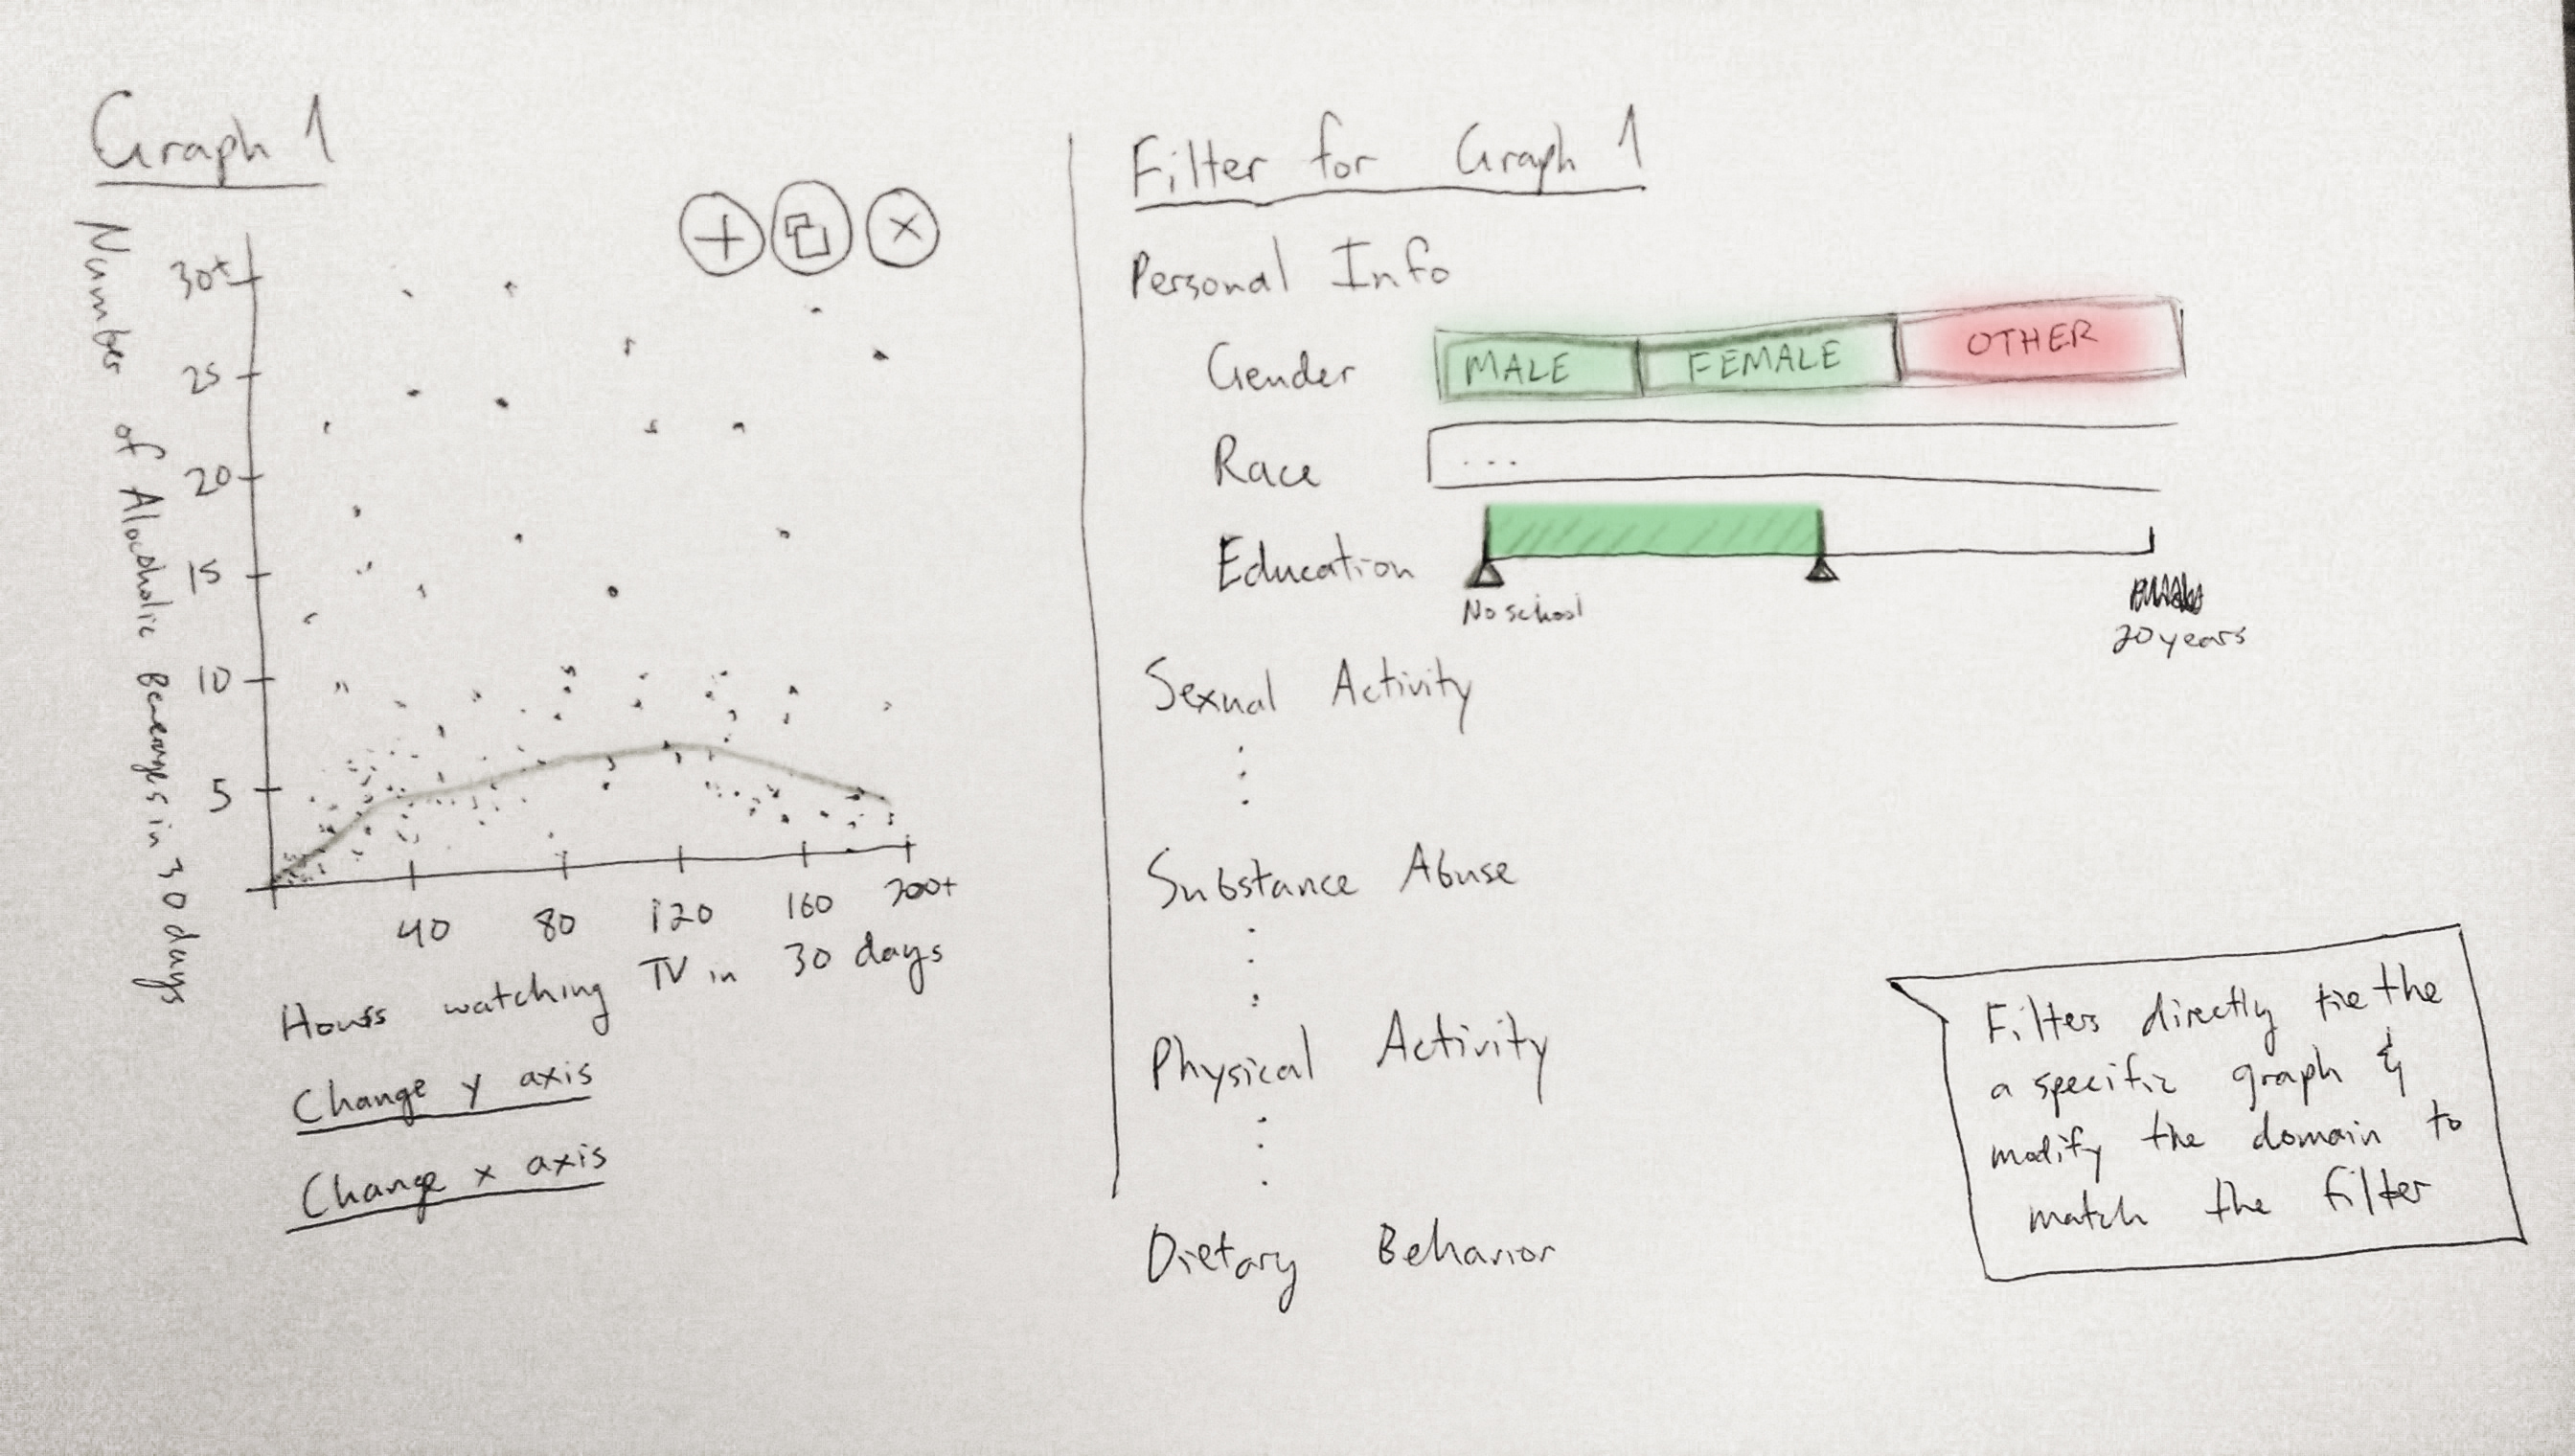 Graph 1
Number of Alocoholic Beverages in 30 days
30+
25
20
15
10
5
40 80 120 160 200+
Hours watching TV in 30 days
Change y axis
Change x axis
Filter for Graph 1
Personal Info
Gender MALE FEMALE OTHER
Race ...
Education
No school
20 years
Sexual Activity
Substance Abuse
Physical Activity
Dietary Behavior
Filters directly tie the
a specific graph &
modify the domain to
match the filter